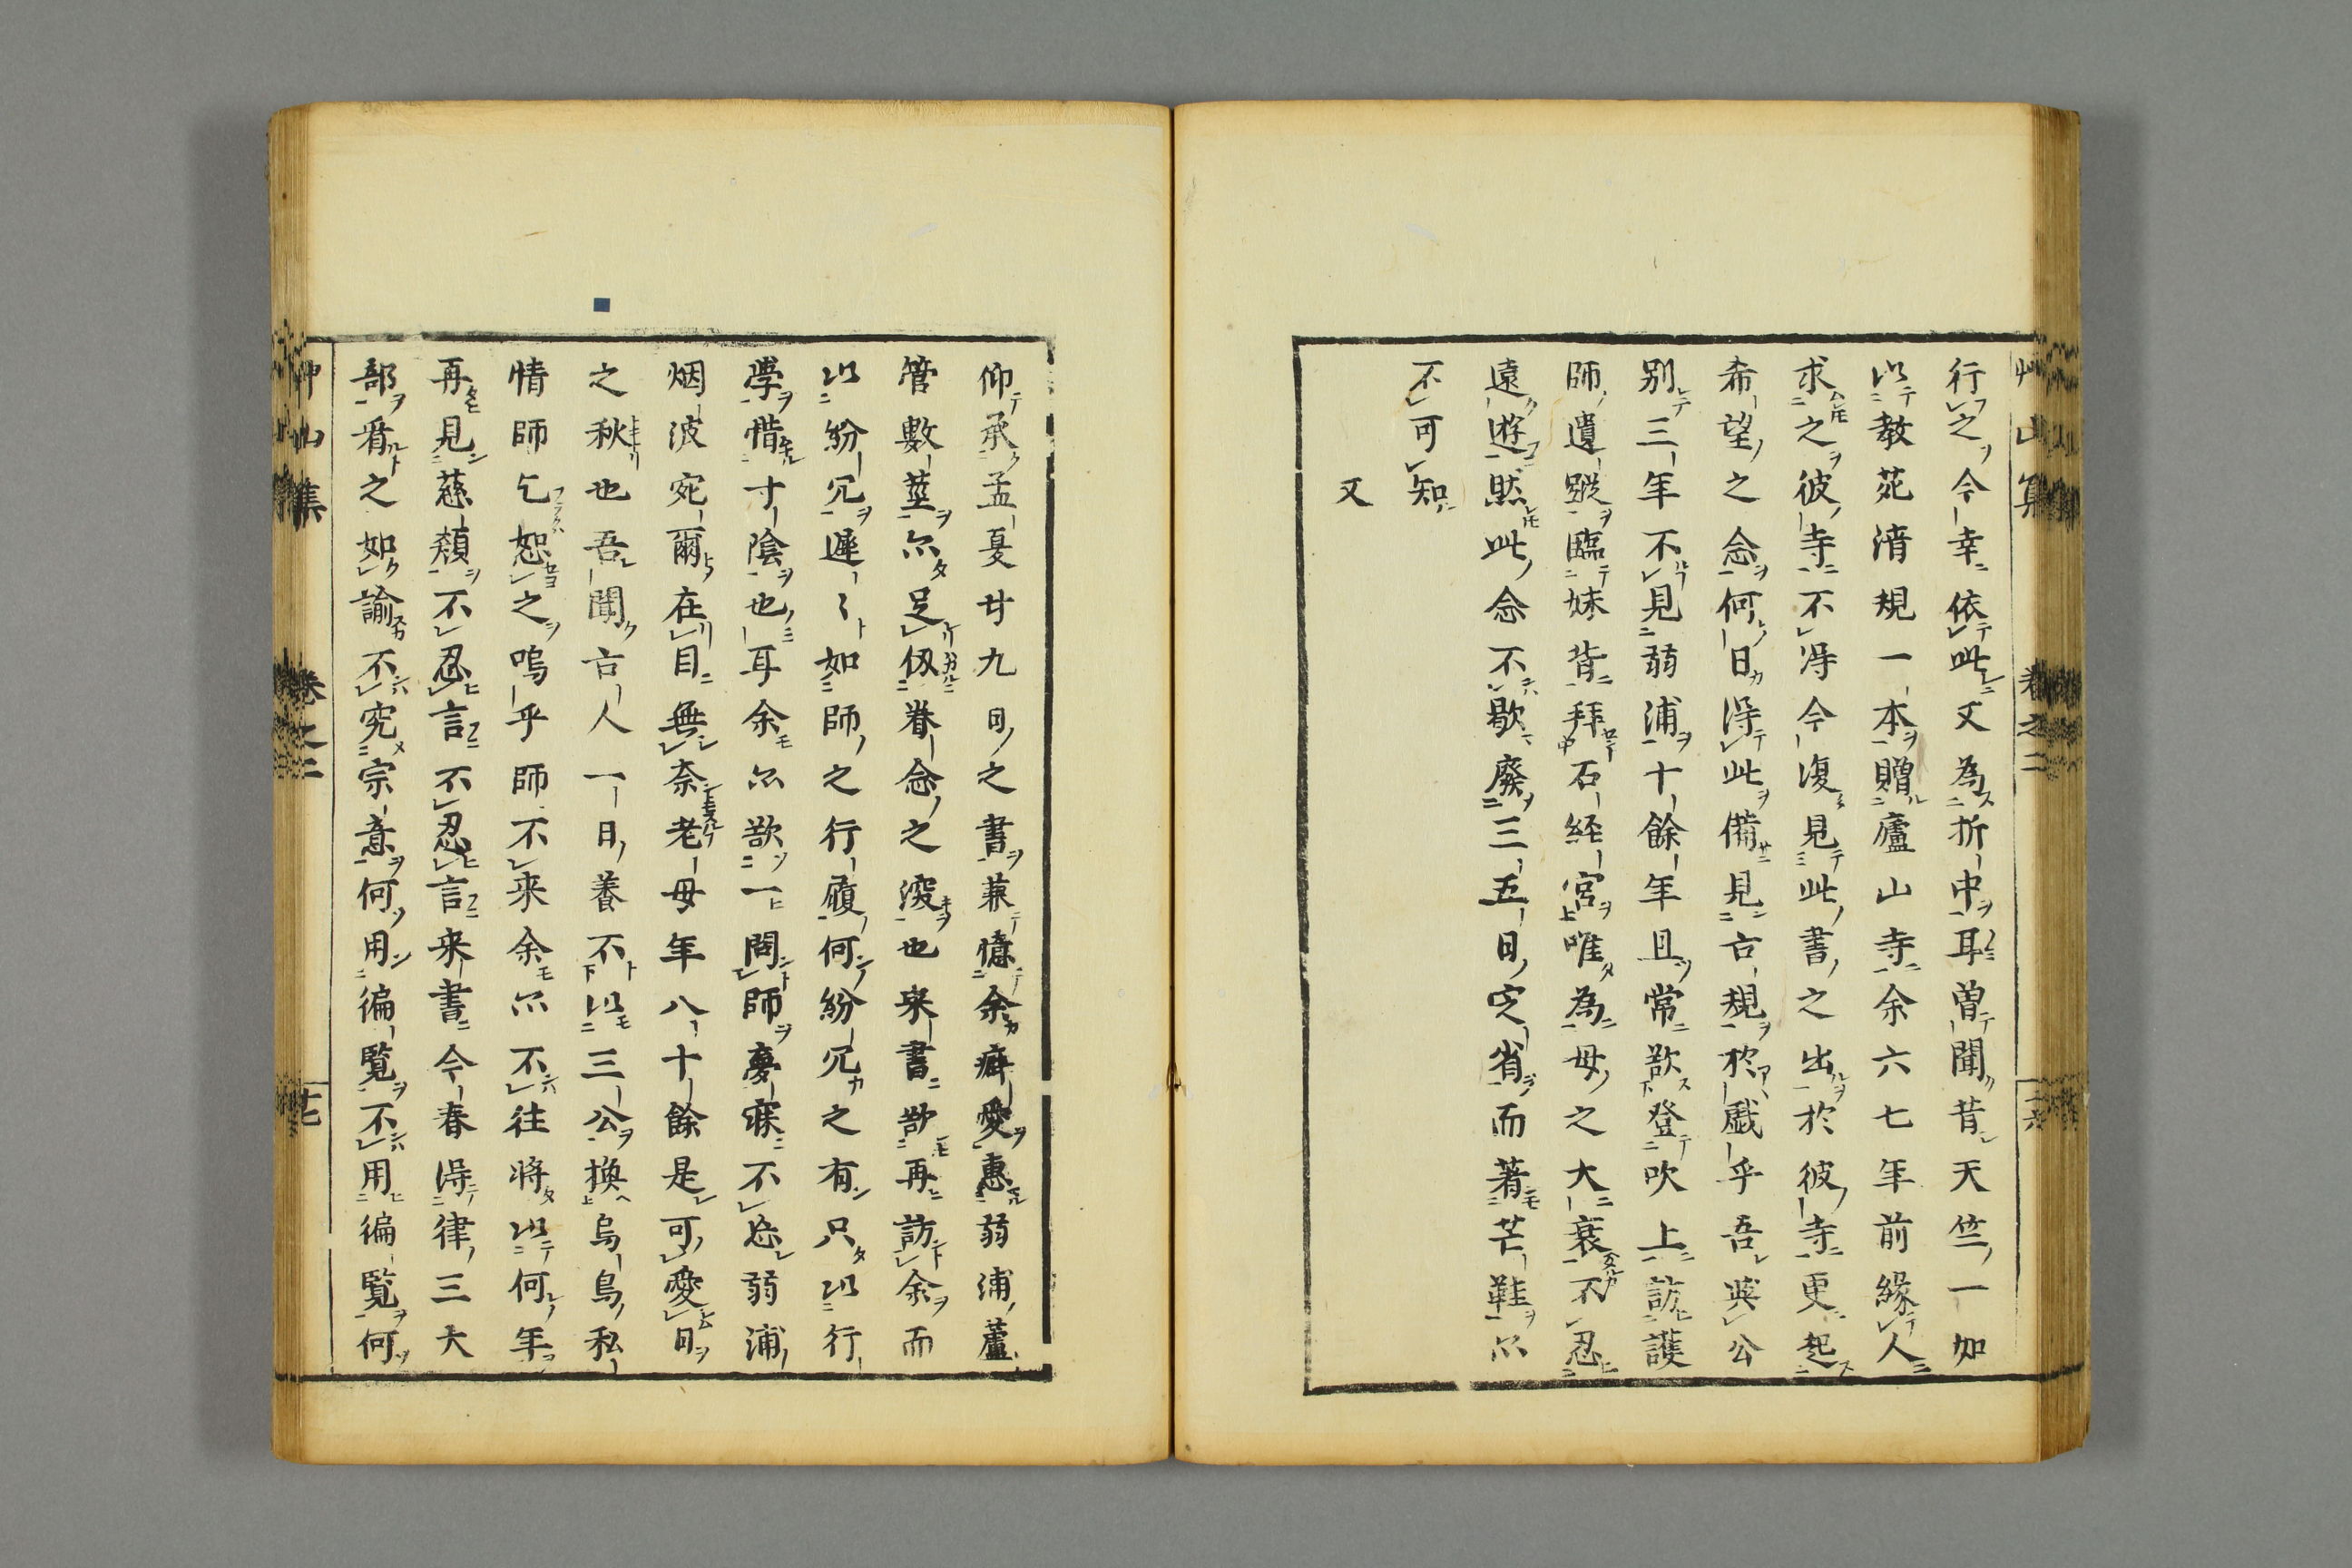 艸山集 卷之二 二六
行之今幸依此文為折中耳曽聞昔天竺一加
以教苑清規一本贈廬山寺余六七年前緣人
求之彼寺不得今復見此書之出於彼寺更起
希望之念何日得此備見古規於戲乎吾與公
別三年不見弱浦十餘年且常欲登吹上訪護
師遺蹤臨妹背拜石経宮唯為母之大衰不忍
遠遊然此念不歇廢三五日定省而著芒鞋亦
不可知
又
仰承孟夏廿九日之書兼憶余癖愛惠弱浦蘆
管數莖亦足仭眷念之深也来書欲再訪余而
以紛冗遲〻如師之行履何紛冗之有只以行
學惜寸陰也耳余亦欲一問師夢寐不忘弱浦
烟波宛爾在目無奈老母年八十餘是可愛日
之秋也吾聞古人一日養不以三公換烏鳥私
情師乞恕之嗚乎師不来余亦不往將以何年
再見慈顏不忍言不忍言来書今春得律三大
部看之如諭不究宗意何用徧覧不用徧覧何
艸山集 卷之二 廿七